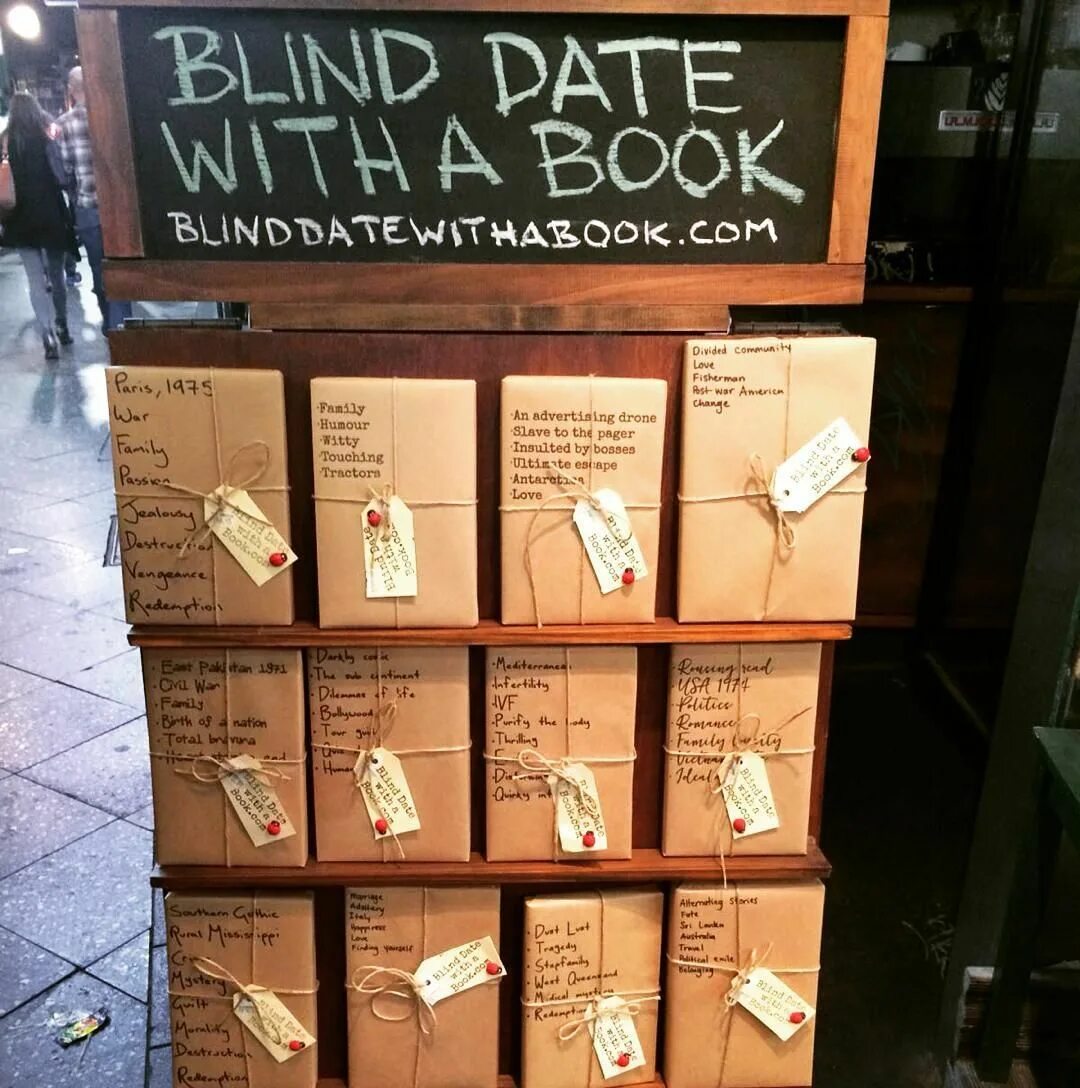 BLIND DATE
WITH A BOOK
BLINDDATEWITHABOOK.COM
Paris, 1975
War
Family
Passion
Jealousy
Destruction
Vengeance
Redemption
Blind Date
with a
Book.com
·Family
·Humour
·Witty
·Touching
·Tractors
Blind Date
with a
Book.com
·An advertising drone
·Slave to the pager
·Insulted by bosses
·Ultimate escape
·Antarctica
·Love
Blind Date
with a
Book.com
Divided community
Love
Fisherman
Post-war America
Change
Blind Date
with a
Book.com
· East Pakistan 1971
· Civil War
· Family
· Birth of a nation
· Total
Blind Date
with a
Book.com
· Darkly comic
· The sub continent
· Dilemmas of life
· Bollywood
· Tour
Blind Date
with a
Book.com
·Mediterranean
·Infertility
·IVF
·Purify the body
·Thrilling
·Quirky
Blind Date
with a
Book.com
· Rousing read
· USA 1974
· Politics
· Romance
· Family
· Vietnam
Blind Date
with a
Book.com
Southern Gothic
Rural Mississippi
Mystery
Guilt
Morality
Destruction
Redemption
Blind Date
with a
Book.com
Marriage
Adultery
Italy
Happiness
Love
Finding yourself
Blind Date
with a
Book.com
· Dust Lust
· Tragedy
· Stepfamily
· West Queensland
· Midical mystery
· Redemption
Blind Date
with a
Book.com
Alternating stories
Fate
Sri Lanka
Australia
Travel
Political exile
Belonging
Blind Date
with a
Book.com